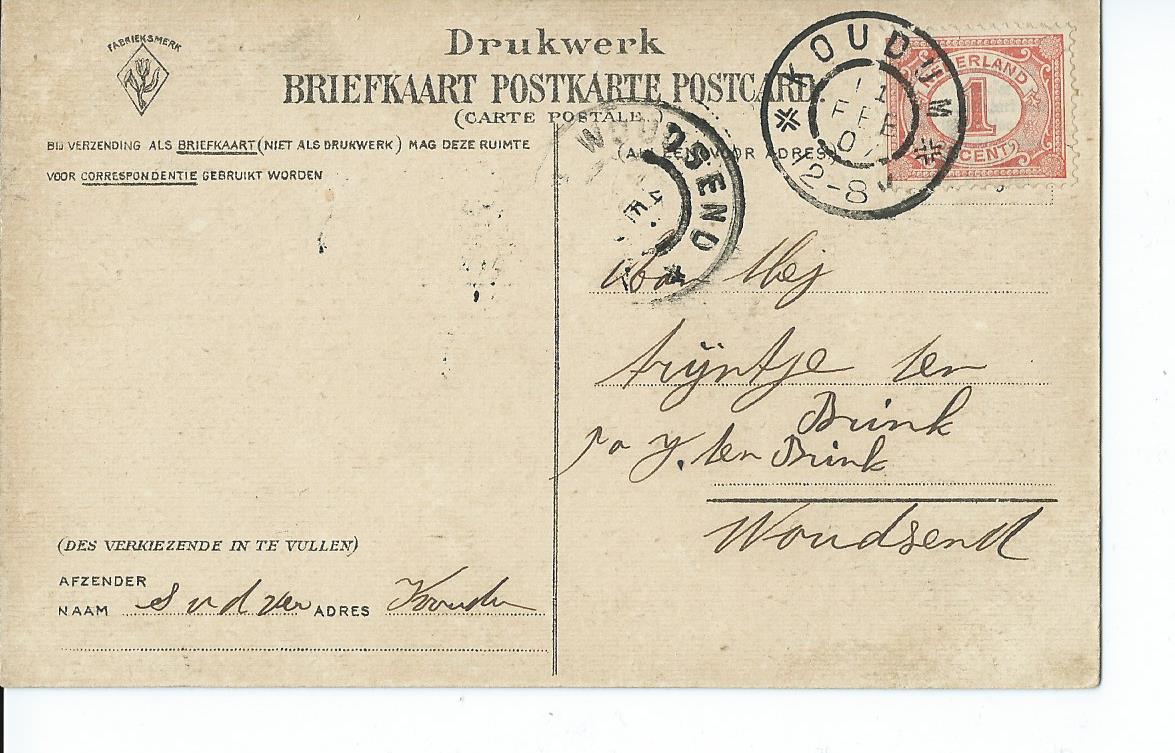 FABRIEKSMERK
Drukwerk
BRIEFKAART POSTKARTE POSTCARD
(CARTE POSTALE.)
BIJ VERZENDING ALS BRIEFKAART (NIET ALS DRUKWERK) MAG DEZE RUIMTE
VOOR CORRESPONDENTIE GEBRUIKT WORDEN
(ALLEEN VOOR ADRES)
KOUDUM
11
FEB
12-8
NEDERLAND
1
CENT
WOUDSEND
Aan Mej
Trijntje ten
Brink
p/a Y. ten Brink
Woudsend
(DES VERKIEZENDE IN TE VULLEN)
AFZENDER
NAAM S v d ADRES Koudum